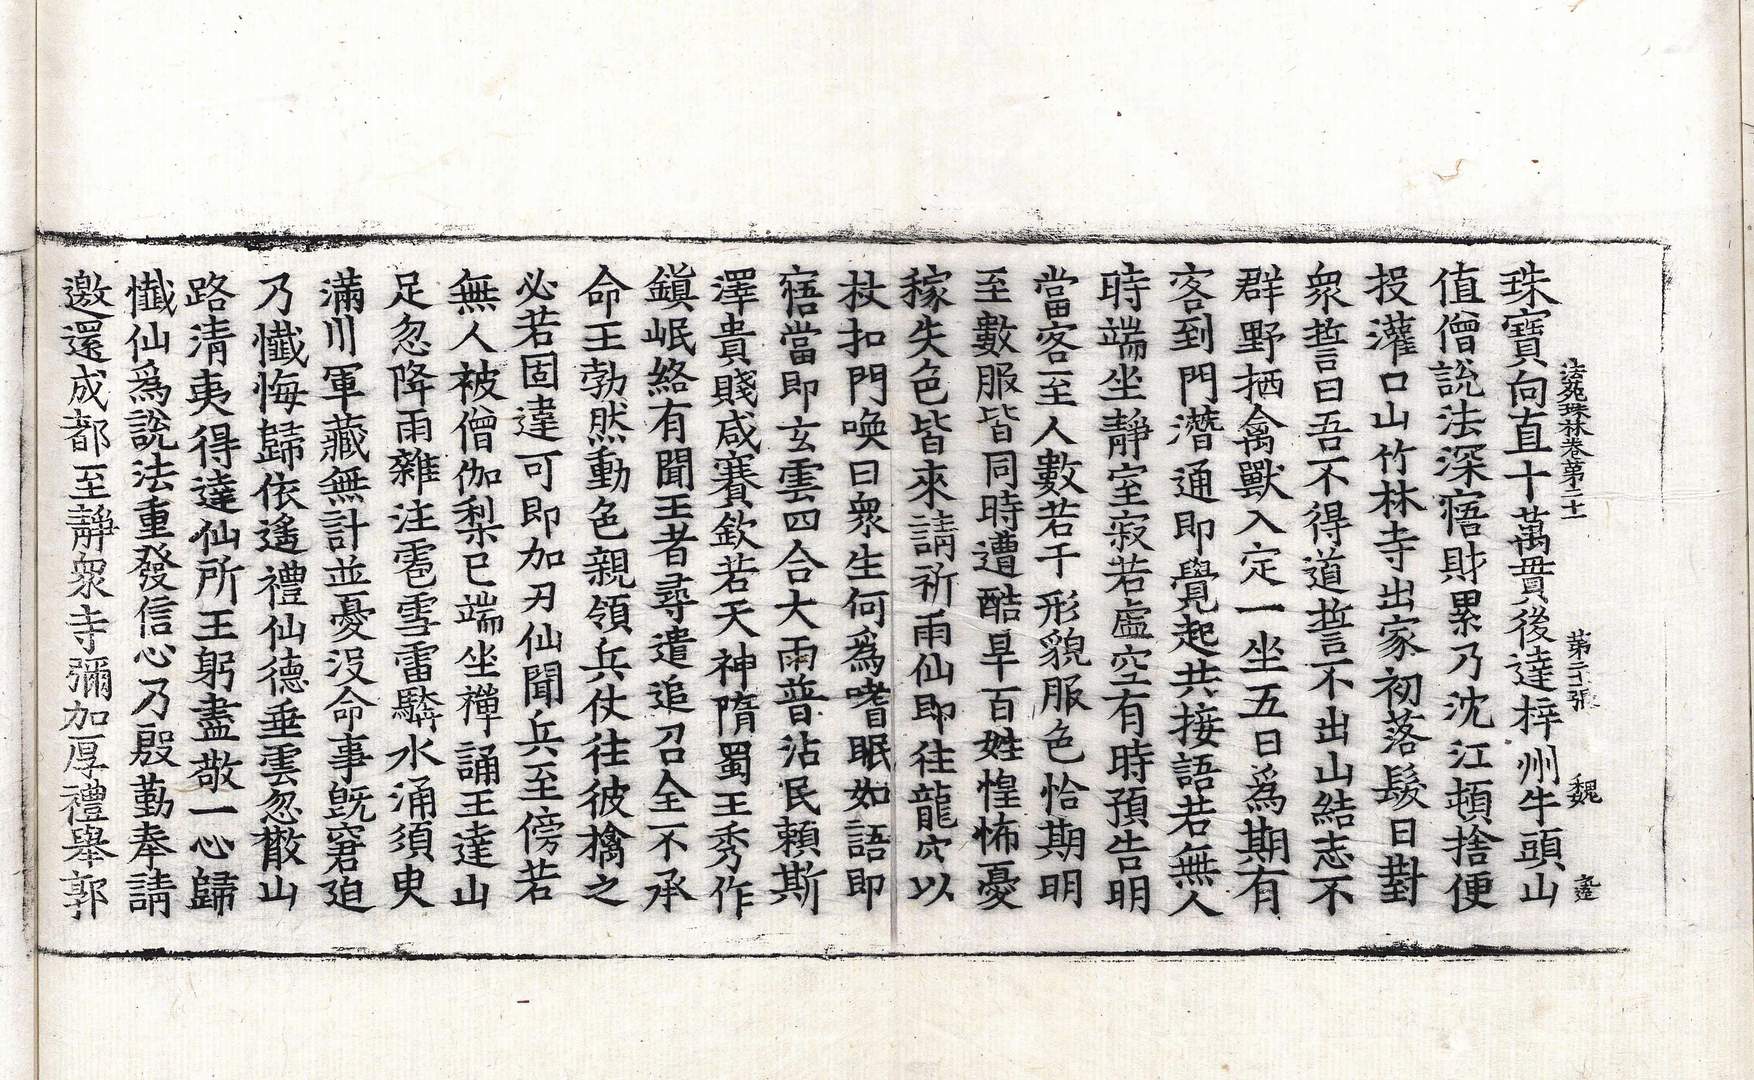 法苑珠林卷第二十 第二十張 魏
珠寶向直十萬貫後達梓州牛頭山
值僧說法深寤財累乃沈江頓捨便
投灌口山竹林寺出家初落髮日對
衆誓曰吾不得道誓不出山結志不
群野栖禽獸入定一坐五日爲期有
客到門潛通即覺起共接語若無人
時端坐靜室寂若虛空有時預告明
當客至人數若干形貌服色恰期明
至數服皆同時遭酷旱百姓惶怖憂
稼失色皆來請祈雨仙即往龍穴以
杖扣門喚曰衆生何爲嗜眠如語即
寤當即玄雲四合大雨普沾民賴斯
澤貴賤咸賽欽若天神隋蜀王秀作
鎮岷絡有聞王者尋遣追召全不承
命王勃然動色親領兵仗往彼擒之
必若固違可即加刃仙聞兵至傍若
無人被僧伽梨已端坐禪誦王達山
足忽降雨雜注雹雪雷驎水涌須臾
滿川軍藏無計並憂沒命事既窘迫
乃懺悔歸依遙禮仙德垂雲忽散山
路清夷得達仙所王躬盡敬一心歸
懺仙爲說法重發信心乃殷勤奉請
邀還成都至靜衆寺彌加厚禮舉郭